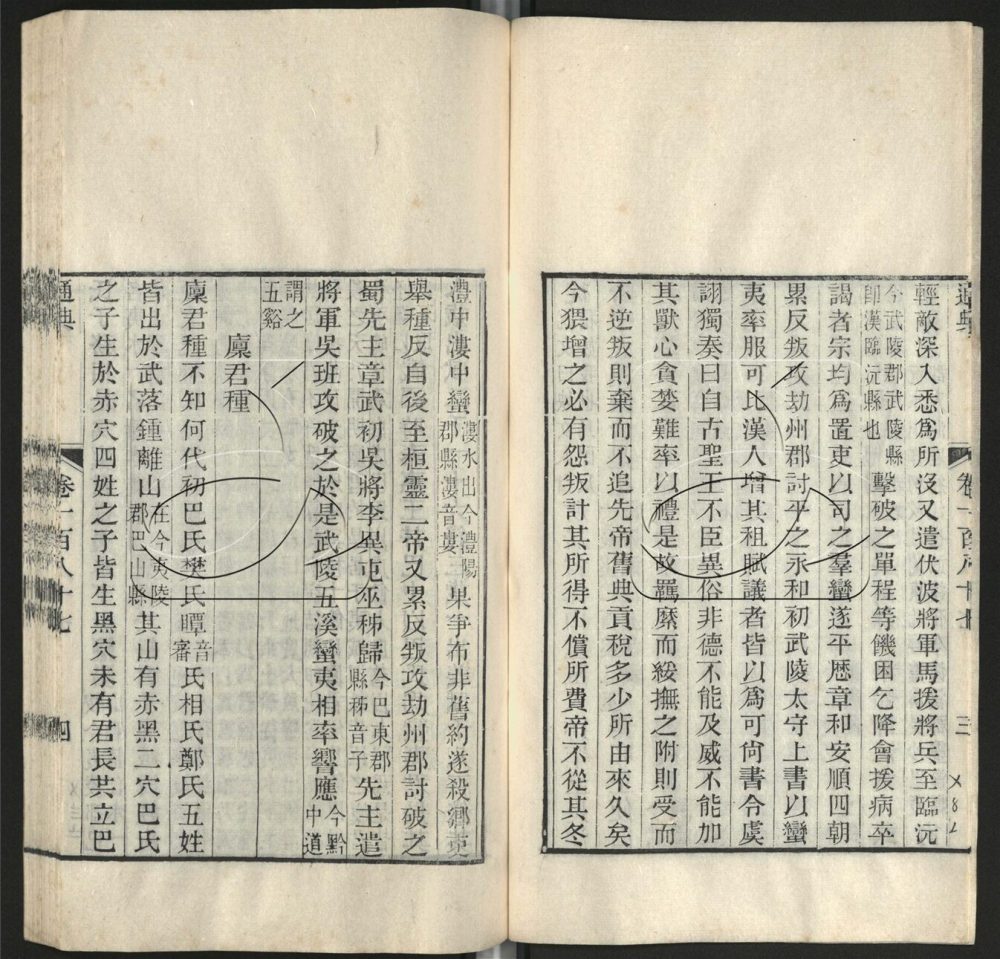 通典
卷一百八十七
三
輕敵深入悉爲所沒又遣伏波將軍馬援將兵至臨沅
今武陵郡武陵縣
卽漢臨沅縣也
擊破之單程等饑困乞降會援病卒
謁者宗均爲置吏以司之羣蠻遂平歷章和安順四朝
累反叛攻劫州郡討平之永和初武陵太守上書以蠻
夷率服可比漢人增其租賦議者皆以爲可尙書令虞
詡獨奏曰自古聖王不臣異俗非德不能及威不能加
其獸心貪婪難率以禮是故羈縻而綏撫之附則受而
不逆叛則棄而不追先帝舊典貢稅多少所由來久矣
今猥增之必有怨叛計其所得不償所費帝不從其冬
澧中漊中蠻
漊水出今澧陽
郡縣漊音婁
果爭布非舊約遂殺鄉吏
舉種反自後至桓靈二帝又累反叛攻劫州郡討破之
蜀先主章武初吳將李異屯巫秭歸
今巴東郡
縣秭音子
先主遣
將軍吳班攻破之於是武陵五溪蠻夷相率響應
今黔
中道
謂之
五谿
廩君種
廩君種不知何代初巴氏樊氏瞫
音
審
氏相氏鄭氏五姓
皆出於武落鍾離山
在今夷陵
郡巴山縣
其山有赤黑二穴巴氏
之子生於赤穴四姓之子皆生黑穴未有君長共立巴
通典
卷一百八十七
四